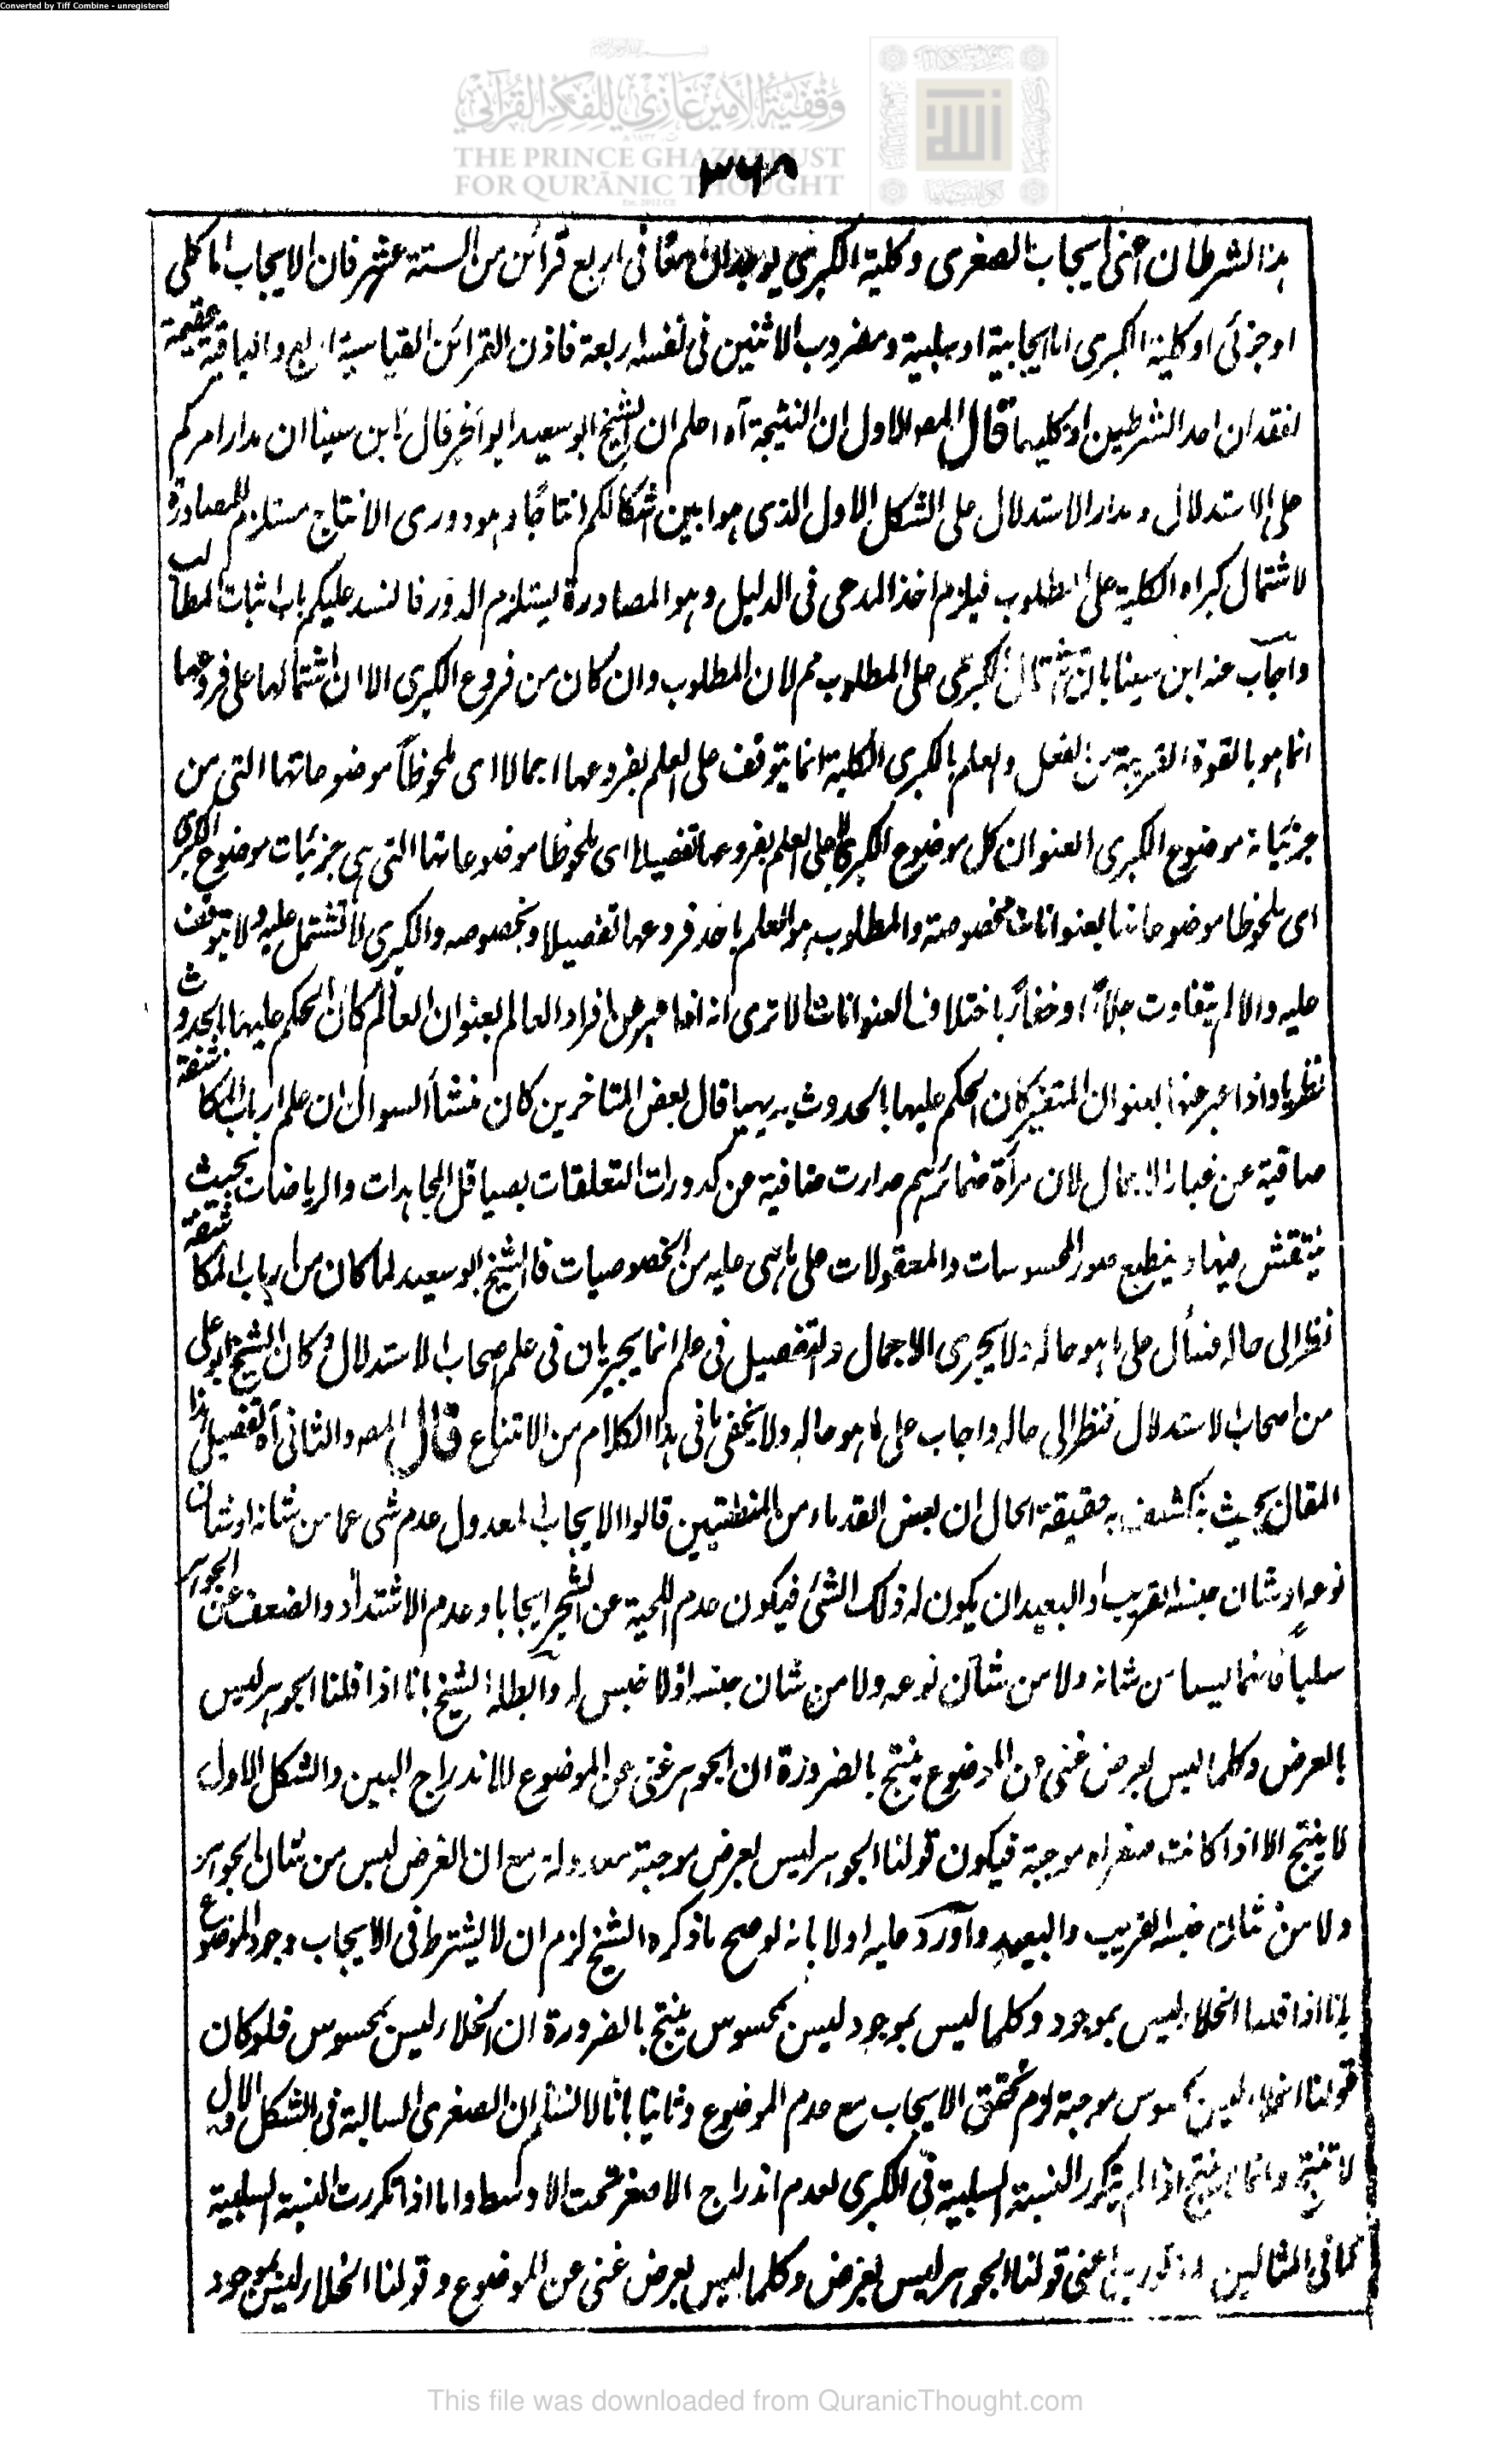 Converted by Tiff Combine - unregistered
وقفية الأمير غازي للفكر القرآني
THE PRINCE GHAZI TRUST
FOR QUR'ĀNIC THOUGHT
Est. 2012 CE
۳۶۸
هذا الشرطان اعنى ايجاب الصغرى وكلية الكبرى يوجدان معًا فى اربع قرائن من الستة عشر فان الايجاب اما كلى
او جزئى او كلية الكبرى اما ايجابية او سلبية ومضروب الاثنين فى نفسه اربعة فاذن القرائن القياسية اربع والباقية عقيمة
لفقدان احد الشرطين او كليهما قال المصه الاول ان النتيجة آه اعلم ان الشيخ ابو سعيد ابو الخير قال لابن سينا ان مدار امركم
على الاستدلال ومدار الاستدلال على الشكل الاول الذى هو ابين اشكالكم انتاجًا وهو دورى الانتاج مستلزم للمصادرة
لاشتمال كبراه الكلية على المطلوب فيلزم اخذ المدعى فى الدليل وهو المصادرة يستلزم الدور فالسد عليكم باب اثبات المطالب
واجاب عنه ابن سينا بان اشتمال الكبرى على المطلوب مم لان المطلوب وان كان من فروع الكبرى الا ان اشتمالها على فروعها
انما هو بالقوة القريبة من الفعل والعلم بالكبرى الكلية انما يتوقف على العلم بفروعها اجمالا اى ملحوظًا موضوعاتها التى من
جزئيات موضوع الكبرى بعنوان كل موضوع الكبرى لا على العلم بفروعها تفصيلا اى ملحوظا موضوعاتها التى هى جزئيات موضوع الكبرى
اى ملحوظا موضوعاتها بعنوانات مخصوصة والمطلوب هو العلم باحد فروعها تفصيلا وبخصوصه والكبرى لا تشتمل عليه ولا يتوقف
عليه والا لم يتفاوت جلاءً او خفاءً باختلاف العنوانات الا ترى انه اذا عبر عن افراد العالم بعنوان العالم كان الحكم عليها بالحدوث
نظريا واذا عبر عنها بعنوان المتغير كان الحكم عليها بالحدوث بديهيا قال بعض المتاخرين كان منشأ السوال ان علم ارباب المكاشفة
صافية عن غبار الاجمال لان مرآة ضمائرهم صارت صافية عن كدورات التعلقات بصياقل المجاهدات والرياضات بحيث
ينتقش فيها وينطبع صور المحسوسات والمعقولات على ما هى عليه من الخصوصيات فالشيخ ابو سعيد لما كان من ارباب المكاشفة
نظر الى حاله فسأل على ما هو حاله ولا يجرى الاجمال والتفصيل فى علم انما يجريان فى علم اصحاب الاستدلال وكان الشيخ ابو على
من اصحاب الاستدلال فنظر الى حاله واجاب على ما هو حاله ولا يخفى ما فى هذا الكلام من الاقناع قال المصه والثانى آه تفصيل هذا
المقال بحيث ينكشف به حقيقة الحال ان بعض القدماء من المنطقيين قالوا الايجاب المعدول عدم شى عما من شانه او شان
نوعه او شان جنسه القريب او البعيد ان يكون له ذلك الشئ فيكون عدم اللحية عن الشجر ايجابا وعدم الاشتداد والضعف عن الجواهر
سلبًا فانهما ليسا من شانه ولا من شان نوعه ولا من شان جنسه اذ لا جنس له وابطله الشيخ بانا اذا قلنا الجوهر ليس
بالعرض وكلما ليس بعرض غنى عن الموضوع ينتج بالضرورة ان الجوهر غنى عن الموضوع للاندراج البين والشكل الاول
لا ينتج الا اذا كانت صغراه موجبة فيكون قولنا الجوهر ليس بعرض موجبة معدولة مع ان العرض ليس من شان الجواهر
ولا من شان جنسه القريب والبعيد وأورد عليه اولا بانه لو صح ما ذكره الشيخ لزم ان لا يشترط فى الايجاب وجود الموضوع
بانا اذا قلنا الخلاء ليس بموجود وكلما ليس بموجود ليس بمحسوس ينتج بالضرورة ان الخلاء ليس بمحسوس فلو كان
قولنا الخلاء ليس بمحسوس موجبة لزم تحقق الايجاب مع عدم الموضوع وثانيا بانا لا نسلم ان الصغرى السالبة فى الشكل الاول
لا تنتج وانما لا ينتج اذا لم يتكرر النسبة السلبية فى الكبرى لعدم اندراج الاصغر تحت الاوسط واما اذا تكررت النسبة السلبية
كما فى المثالين المذكورين اعنى قولنا الجوهر ليس بعرض وكلما ليس بعرض غنى عن الموضوع وقولنا الخلاء ليس بموجود
This file was downloaded from QuranicThought.com